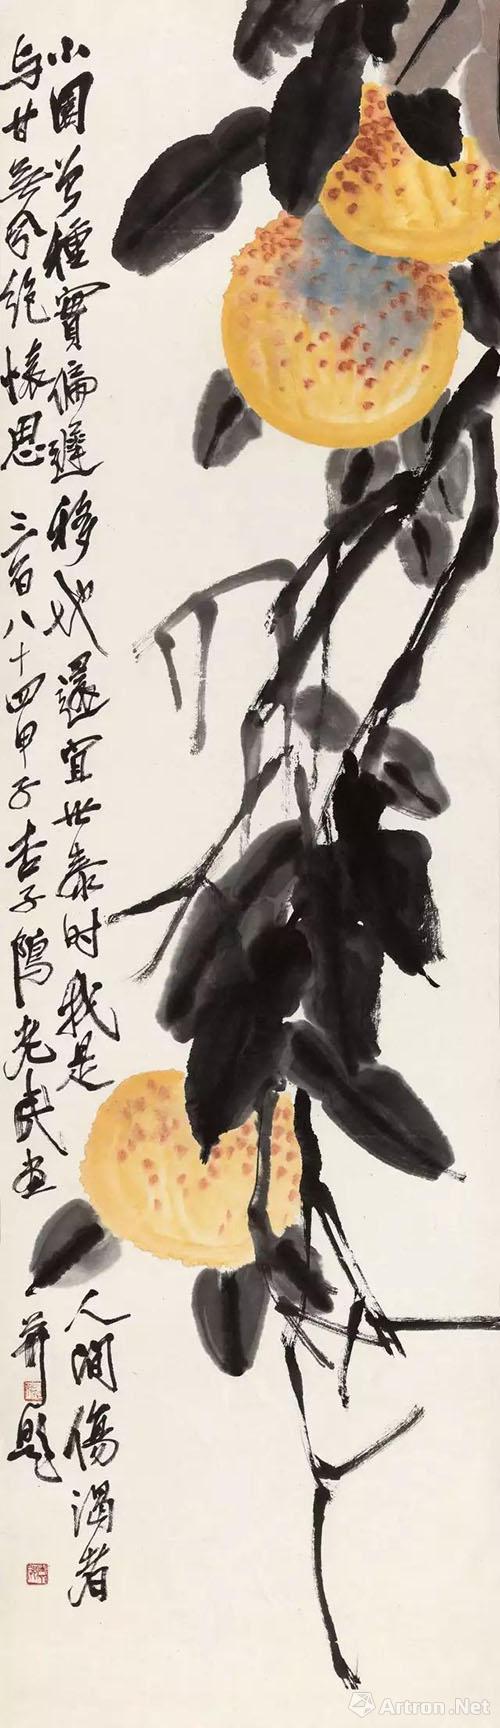 小園曾種實偏遲移地還宜世泰時我是人間傷渴者
与甘無分絕懷思 三百八十四甲子杏子隖老民画并題
Artron.Net